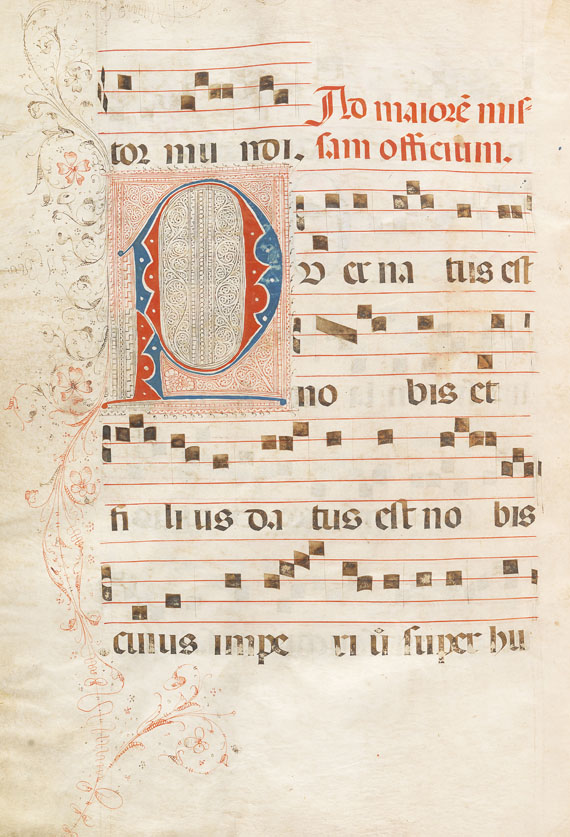 Ad maiorē mis-
tor mu ndi. sam officium.
PV er na tus est
no bis et
fi li us da tus est no bis
cuius impe ri ū super hu